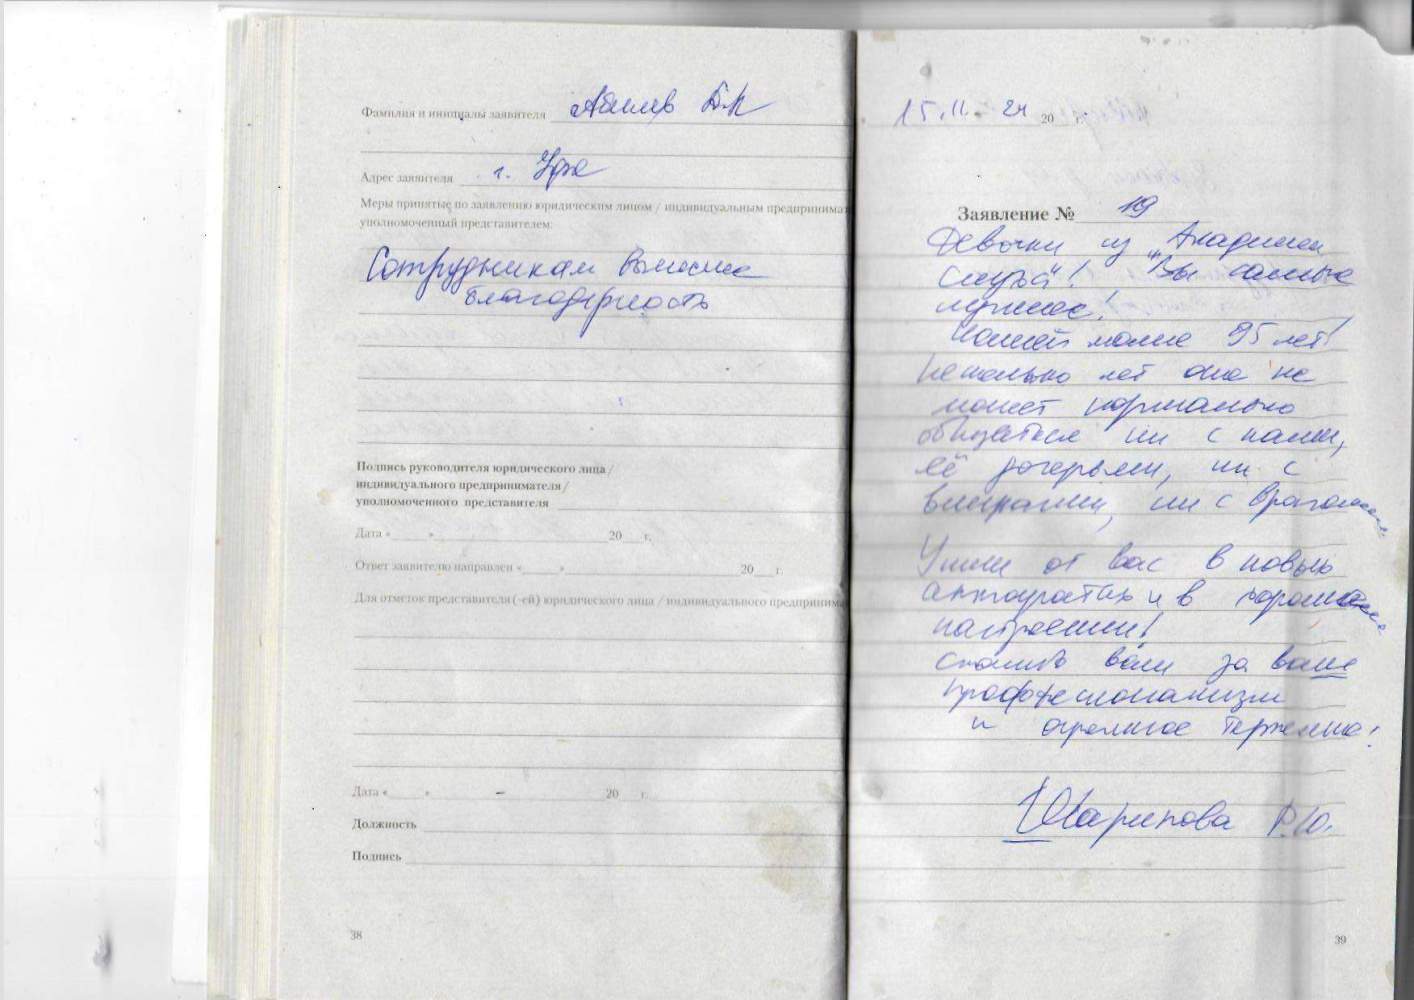 Фамилия и инициалы заявителя
Адрес заявителя г. Уфа
Меры принятые по заявлению юридическим лицом / индивидуальным предпринимат
уполномоченный представителем:
Сотрудникам
благодарность
Подпись руководителя юридического лица/
индивидуального предпринимателя/
уполномоченного представителя
Дата « » 20 г.
Ответ заявителю направлен « » 20 г.
Для отметок представителя (-ей) юридического лица / индивидуального предприним
Дата « » 20 г.
Должность
Подпись
38
15.11. 24 20 г.
Заявление № 19
Девочки из "Академии
слуха"! Вы самые
лучшие!
Нашей маме 95 лет!
Несколько лет она не
может нормально
общаться ни с нами,
её дочерьми, ни с
внуками, ни с врачами.
Ушли от вас в новых
аппаратах и в хорошем
настроении!
Спасибо вам за ваш
профессионализм
и огромное терпение!
Шарипова Р.Ю.
39